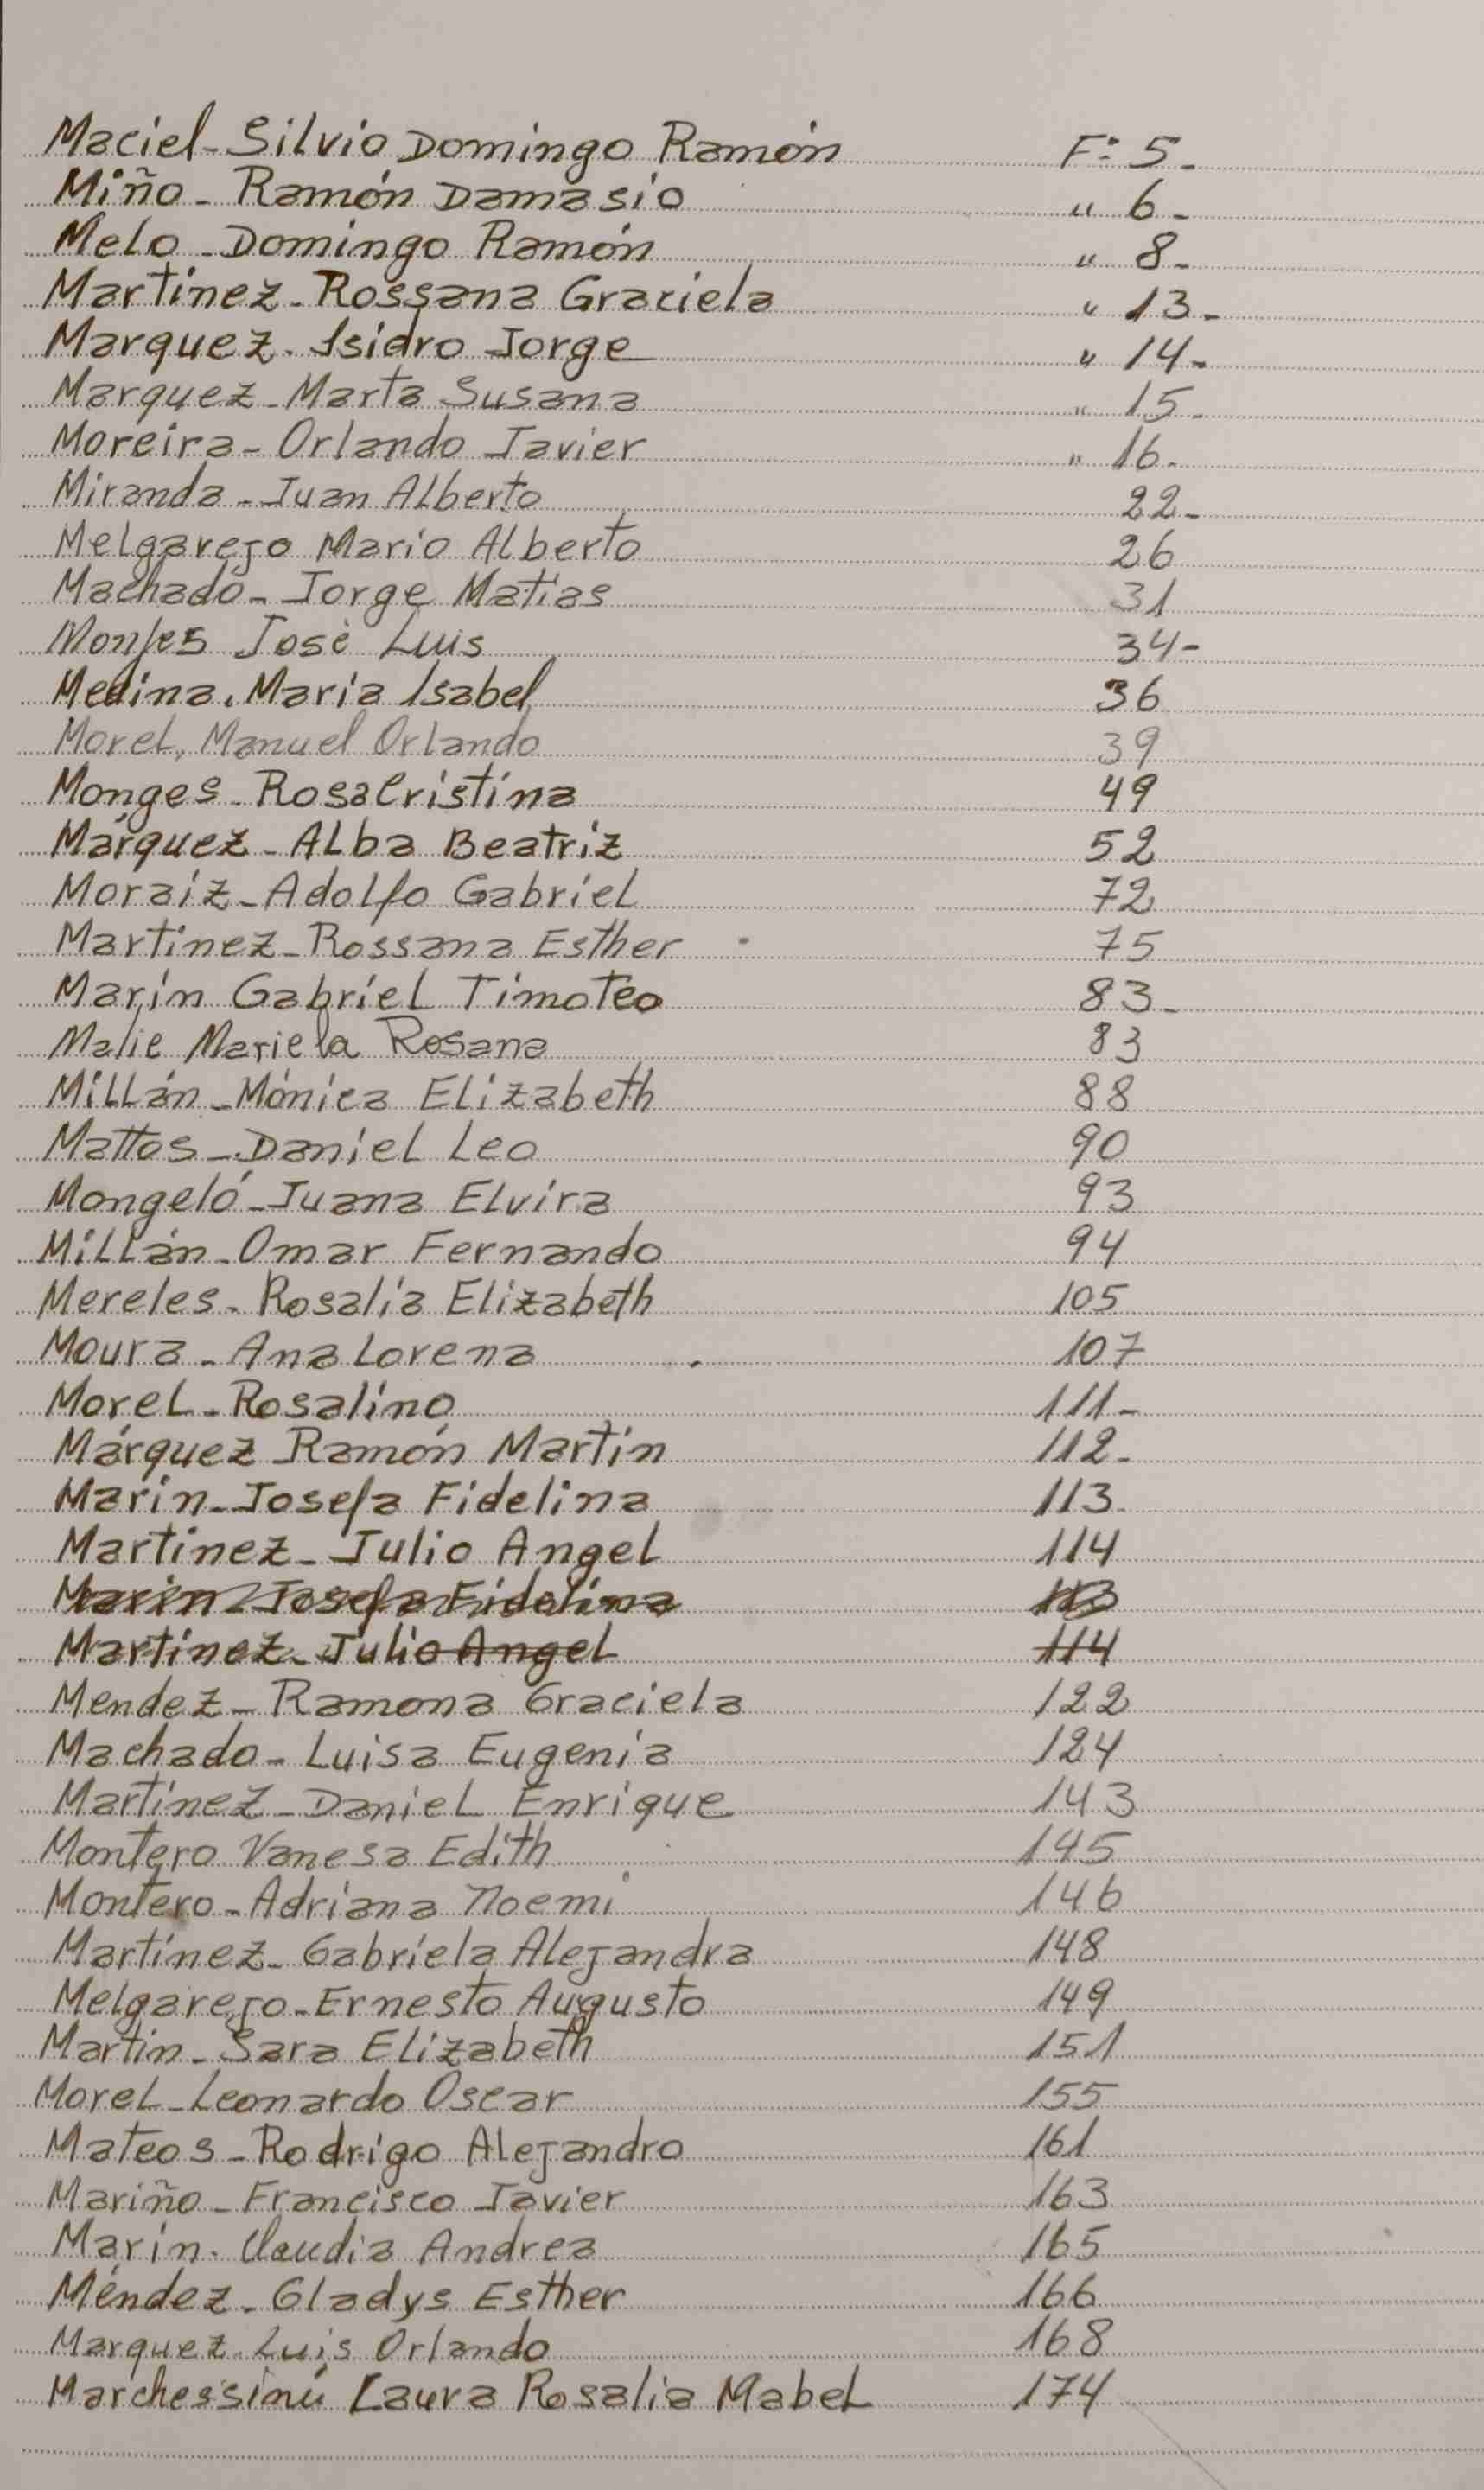 Maciel - Silvio Domingo Ramón F: 5 -
Miño - Ramón Damasio " 6 -
Melo - Domingo Ramón " 8 -
Martínez - Rossana Graciela " 13 -
Marquez - Isidro Jorge " 14 -
Marquez - Marta Susana " 15 -
Moreira - Orlando Javier " 16 -
Miranda - Juan Alberto 22 -
Melgarejo Mario Alberto 26
Machado - Jorge Matías 31
Monjes José Luis 34 -
Medina, María Isabel 36
Morel, Manuel Orlando 39
Monges - Rosa Cristina 49
Márquez - Alba Beatriz 52
Moraiz - Adolfo Gabriel 72
Martinez - Rossana Esther 75
Marín Gabriel Timoteo 83 -
Malie Mariela Rosana 83
Millán - Mónica Elizabeth 88
Mattos - Daniel Leo 90
Mongeló - Juana Elvira 93
Millán - Omar Fernando 94
Mereles - Rosalía Elizabeth 105
Moura - Ana Lorena 107
Morel - Rosalino 111 -
Márquez Ramón Martín 112 -
Marín - Josefa Fidelina 113
Martínez - Julio Angel 114
Marín Josefa Fidelina 113
Martínez - Julio Angel 114
Mendez - Ramona Graciela 122
Machado - Luisa Eugenia 124
Martínez - Daniel Enrique 143
Montero Vanesa Edith 145
Montero - Adriana Noemi 146
Martínez - Gabriela Alejandra 148
Melgarejo - Ernesto Augusto 149
Martin - Sara Elizabeth 151
Morel - Leonardo Oscar 155
Mateos - Rodrigo Alejandro 161
Mariño - Francisco Javier 163
Marín - Claudia Andrea 165
Méndez - Gladys Esther 166
Marquez Luis Orlando 168
Laura Rosalia Mabel 174